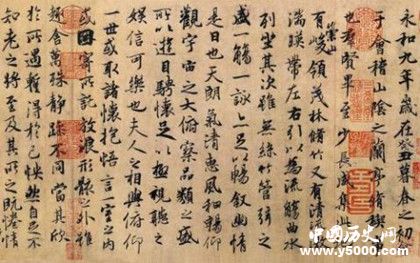 永和九年歲在癸丑暮春之初
于會稽山陰之蘭亭脩稧
也羣賢畢至少長咸集此
有崇山峻領茂林脩竹又有清
湍暎帶左右引以為流觴曲水
列坐其次雖無絲竹管弦之
盛一觴一詠亦足以暢敘幽情
是日也天朗氣清惠風和暢仰
觀宇宙之大俯察品類之盛
所以遊目騁懷足以極視聽之
娛信可樂也夫人之相與俯仰
一世或取諸懷抱悟言一室之內
或因寄所託放浪形骸之外雖
趣舍萬殊靜躁不同當其欣
於所遇蹔得於己怏然自足不
知老之將至及其所之既惓情
中国历史网
www.y5000.com